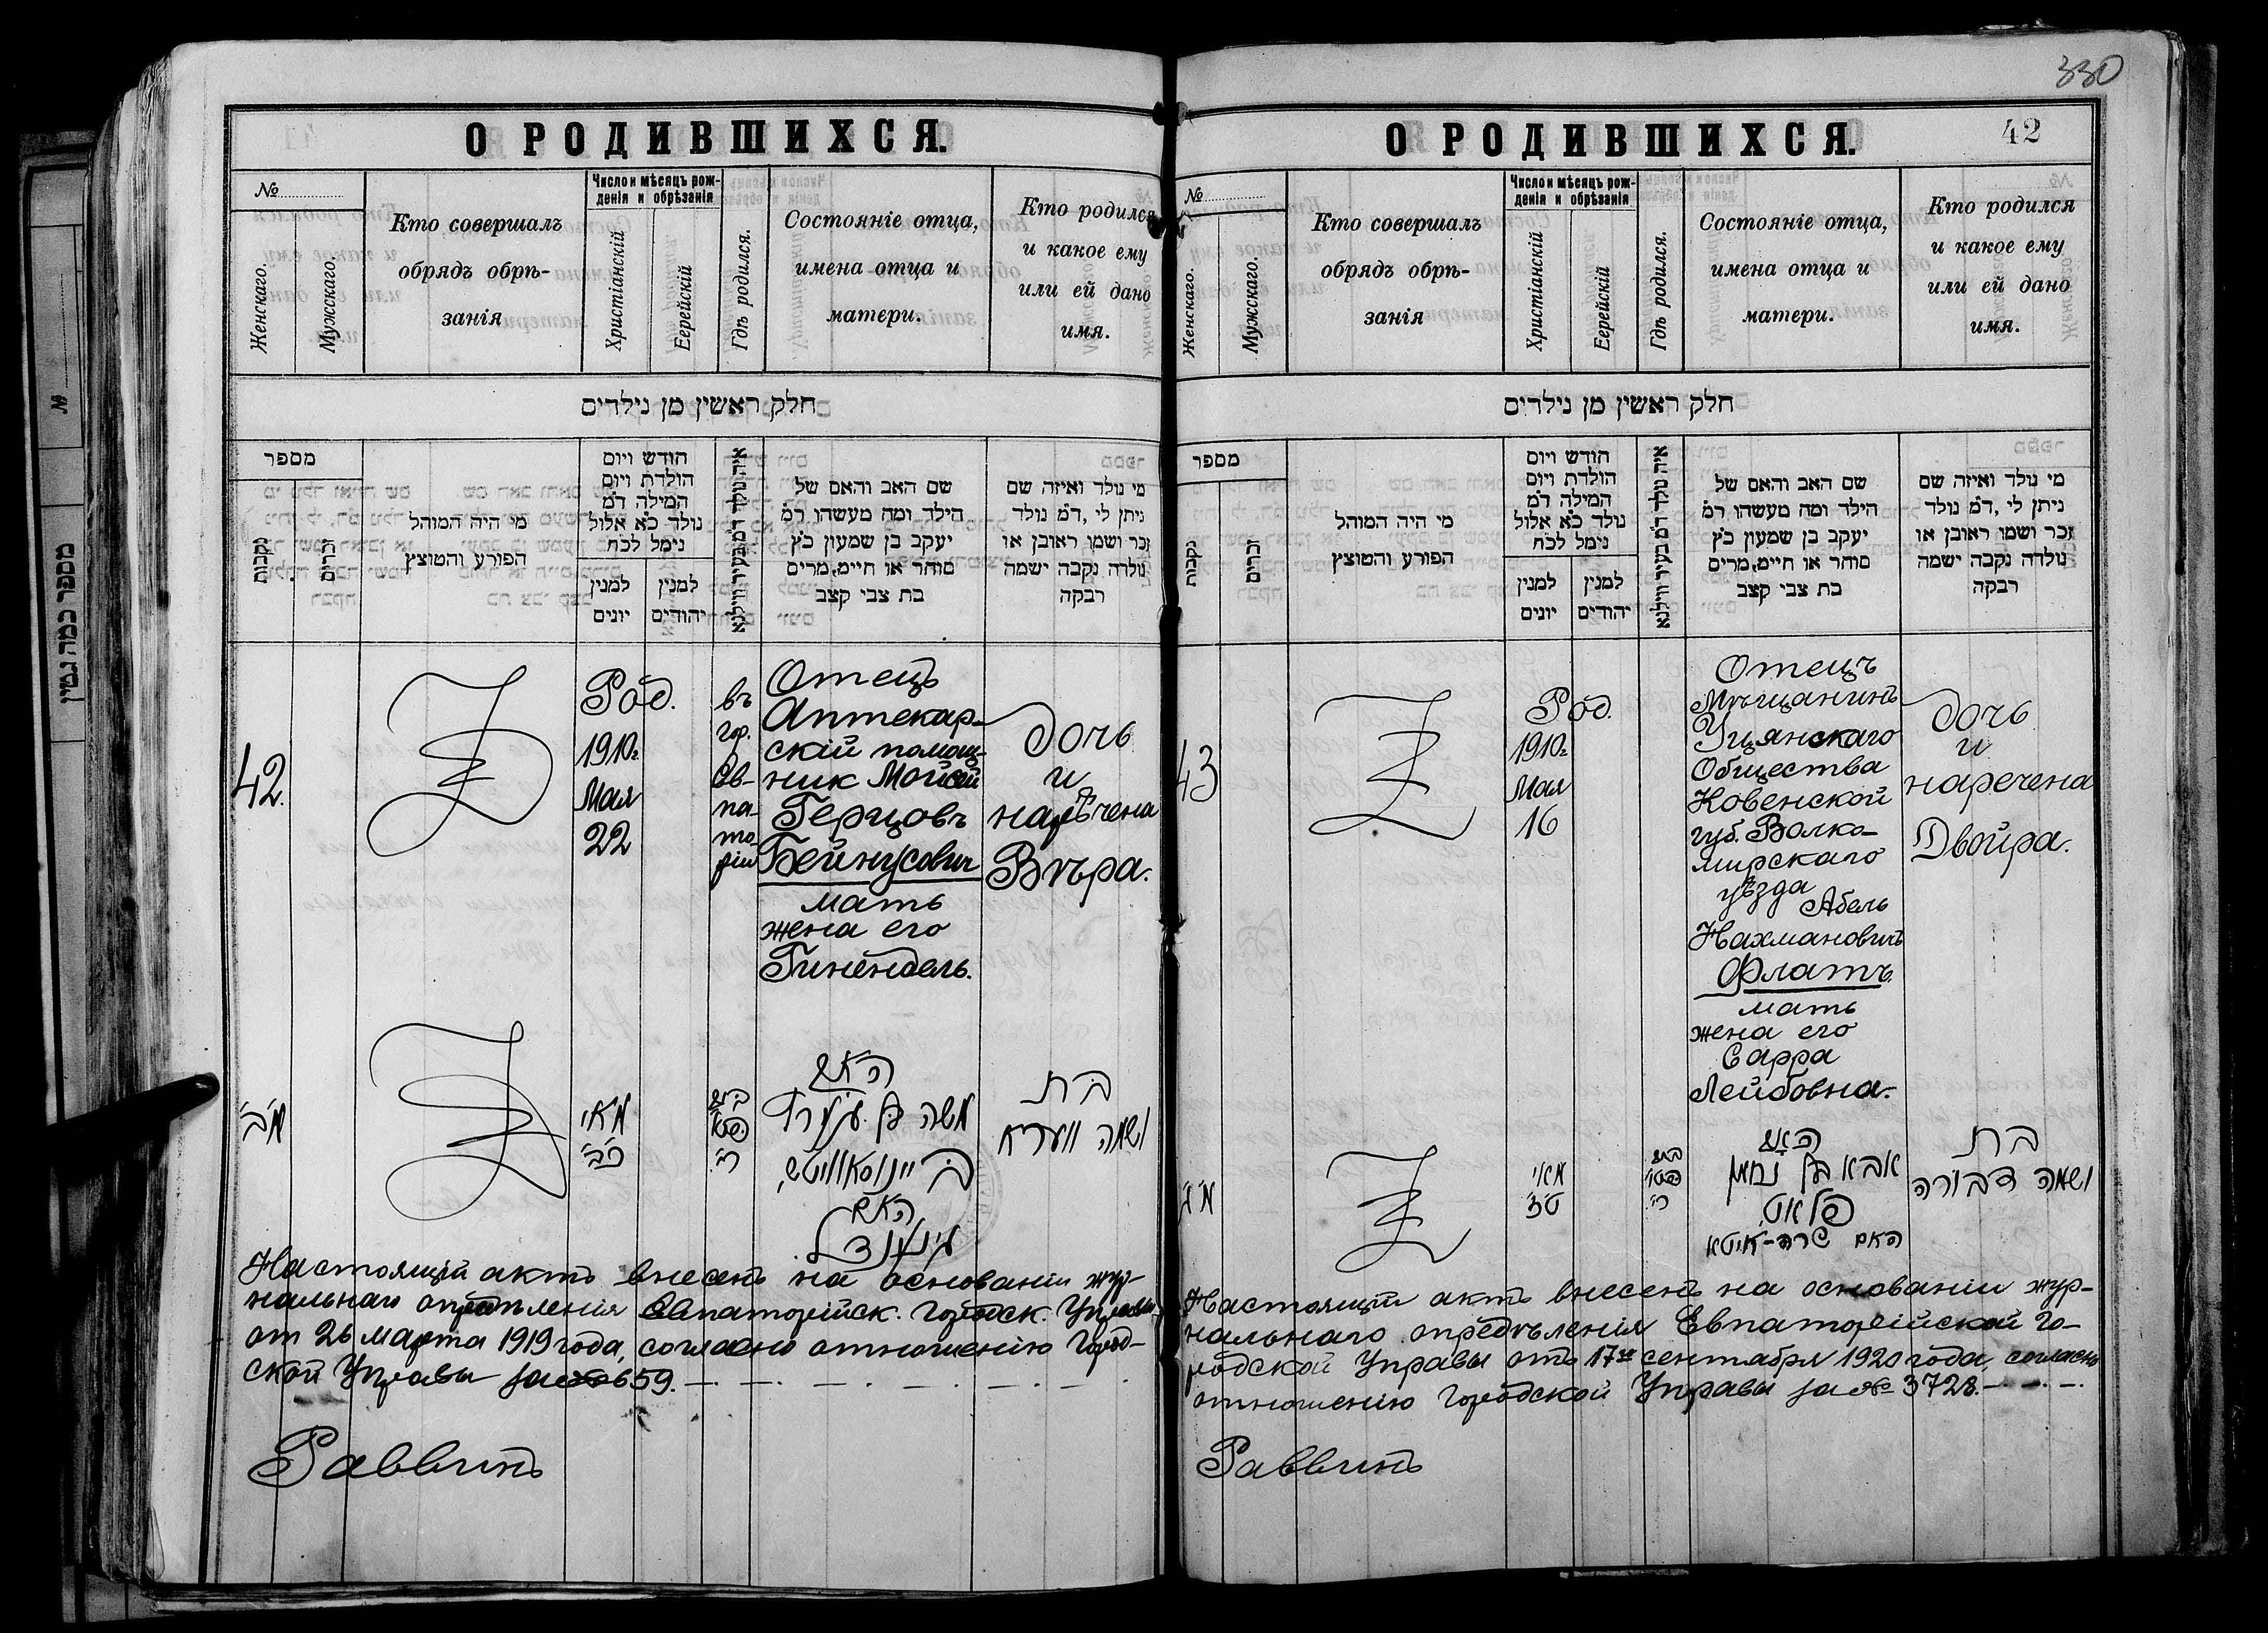 330
О РОДИВШИХСЯ.
№
Женскаго.
Мужскаго.
Кто совершалъ
обрядъ обрѣ-
занія
Число и мѣсяцъ рож-
денія и обрѣзанія
Христіанскій
Еерейскій
Гдѣ родился.
Состояніе отца,
имена отца и
матери.
Кто родился
и какое ему
или ей дано
имя.
חלק ראשין מן נילדים
מספר
נקבות
זכרים
מי היה המוהל
הפורע והטוצץ
הודש ויום
הולדת ויום
המילה ד״מ
נולד כ״א אלול
נימל לכ״ח
למנין
יונים
למנין
יהודים
איה נולד ד״מ בעיר ווילנא
שם האב והאם של
הילד ומה מעשהו ר״מ
יעקב בן שמעון כ״ץ
סוהר או חיים, מרים
בת צבי קצב
מי נולד ואיזה שם
ניתן לי, ד״מ נולד
זכר ושמו ראובן או
נולדה נקבה ישמה
רבקה
42.
Род.
1910 г.
Мая
22
въ
гор.
Ев-
па-
то-
ріи
Отецъ
Аптекар-
скій помощ-
ник Мойсей
Герцовъ
Бейнусович
мать
жена его
Гинендель.
дочь
и
наречена
Вѣра.
מ״ב
מאי
כ״ב
האב
משה בן
ביינוסאוויטש,
האם
גינענדל.
בת
ושמה ווערא
Настоящій актъ внесенъ на основаніи жур-
нальнаго опредѣленія Евпаторійск. Городск. Управы
от 26 марта 1919 года, согласно отношенію Город-
ской Управы за № 659.
Раввинъ
О РОДИВШИХСЯ.
42
№
Женскаго.
Мужскаго.
Кто совершалъ
обрядъ обрѣ-
занія
Число и мѣсяцъ рож-
денія и обрѣзанія
Христіанскій
Еерейскій
Гдѣ родился.
Состояніе отца,
имена отца и
матери.
Кто родился
и какое ему
или ей дано
имя.
חלק ראשין מן נילדים
מספר
נקבות
זכרים
מי היה המוהל
הפורע והטוצץ
הודש ויום
הולדת ויום
המילה ד״מ
נולד כ״א אלול
נימל לכ״ח
למנין
יונים
למנין
יהודים
איה נולד ד״מ בעיר ווילנא
שם האב והאם של
הילד ומה מעשהו ר״מ
יעקב בן שמעון כ״ץ
סוהר או חיים, מרים
בת צבי קצב
מי נולד ואיזה שם
ניתן לי, ד״מ נולד
זכר ושמו ראובן או
נולדה נקבה ישמה
רבקה
43
Род.
1910 г.
Мая
16
Отецъ
Мѣщанинъ
Уцянскаго
Общества
Ковенской
губ. Волко-
мирскаго
уѣзда Абель
Нахмановичъ
Флатъ.
мать
жена его
Сарра
Лейбовна.
дочь
и
наречена
Двойра.
מ״ג
מאי
ט״ז
האב
אבא בן נחמן
פלאט,
האם שרה-איטא
בת
ושמה דבורה
Настоящій актъ внесенъ на основаніи жур-
нальнаго опредѣленія Евпаторійской Го-
родской Управы отъ 17го сентября 1920 года, согласно
отношенію Городской Управы за № 3728.
Раввинъ
מספר כמה גמין
№